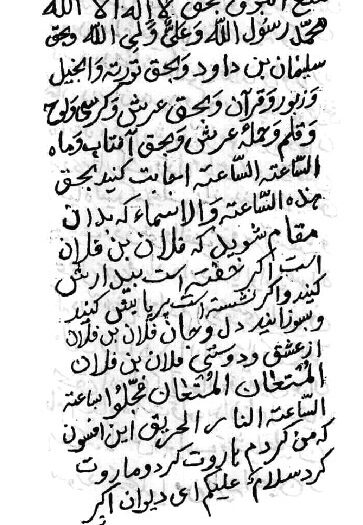 بحق لا اله الا الله
محمد رسول الله وعلی ولی الله وبحق
سلیمان بن داود وبحق توریة وانجیل
وزبور وقرآن وبحق عرش وکرسی ولوح
وقلم وحملهٔ عرش وبحق آفتاب وماه
الساعته الساعته اجابت کنید بحق
هذه الساعته والاسماء که بدان
مقام شوید که فلان بن فلان
است اکر خفته است بیدارش
کنید واکر نشسته است برپایش کنید
وبسوزانید دل وجان فلان بن فلان
ازعشق ودوستی فلان بن فلان
المُتعٰان المُتعٰان عجّلوا ساعته
الساعته النار الحریق این افسون
که من کردم هاروت کرد وماروت
کرد سلامٌ علیکم ای دیوان اکر